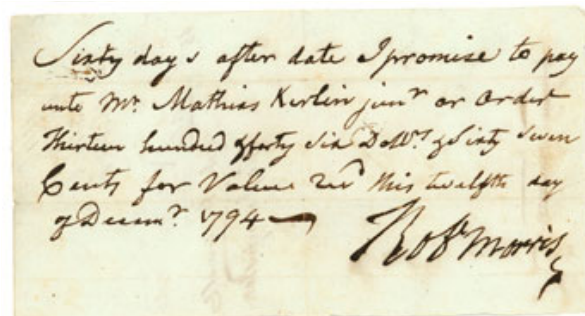 Sixty days after date I promise to pay
unto Mr. Mathias Kerlin junr or Order
thirteen hundred & forty Six Dollrs & Sixty Seven
Cents for Value recd this twelfth day
of Decemr 1794
Robt Morris